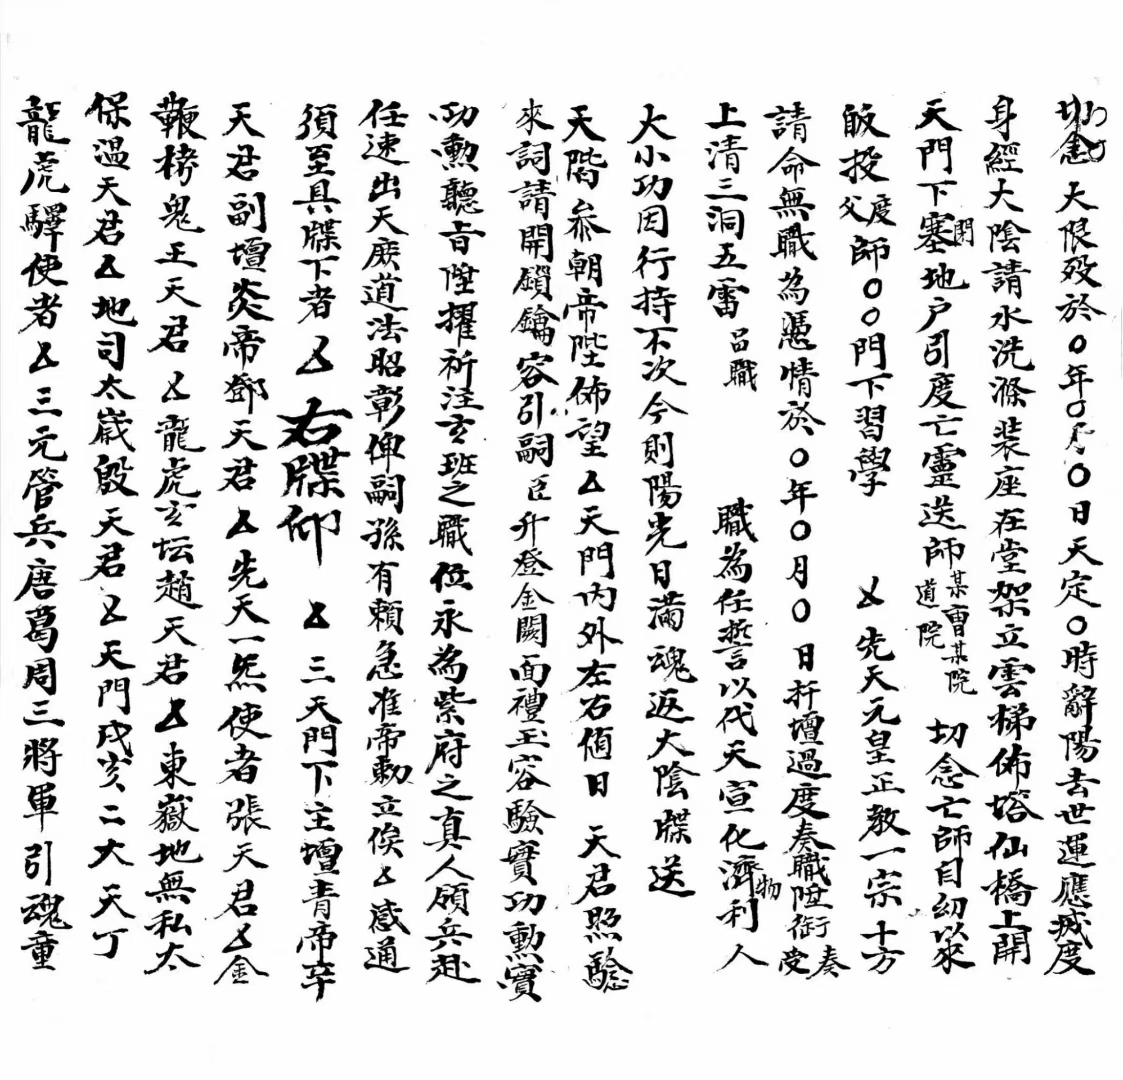 切念 大限歿於〇年〇月〇日天定〇時辭陽去世運應滅度
身經大陰請水洗滌装座在堂架立雲梯佈塔仙橋上開
天門下塞閉地户引度亡靈送師某曹某院道院 切念亡師自幼以来
皈投度父師〇〇門下習學 厶先天元皇正教一宗十方
請命無職為憑情於〇年〇月〇日扦壇過度奏職陞銜奏受
上清三洞五雷 品職 職為任誓以代天宣化濟物利人
大小功因行持不次今則陽光日滿魂返大陰牒送
天階叅朝帝陛佈望厶天門内外左右值日 天君照驗
來詞請開鎖鑰容引嗣臣升登金闕面禮玉容驗實功勲實
功勲聽旨陞擢祈注玄班之職位永為紫府之真人領兵赴
任速出天廐道法昭彰俾嗣孫有賴急准帝勅立俟厶感通
須至具牒下者 厶 右牒仰 厶 三天門下主壇青帝辛
天君副壇炎帝鄧天君厶先天一炁使者張天君厶金
鞭榜鬼王天君厶龍虎玄坛趙天君厶東嶽地無私太
保温天君厶地司太歲殷天君厶天門戌亥二大天丁
龍虎驛使者厶三元管兵唐葛周三將軍引魂童